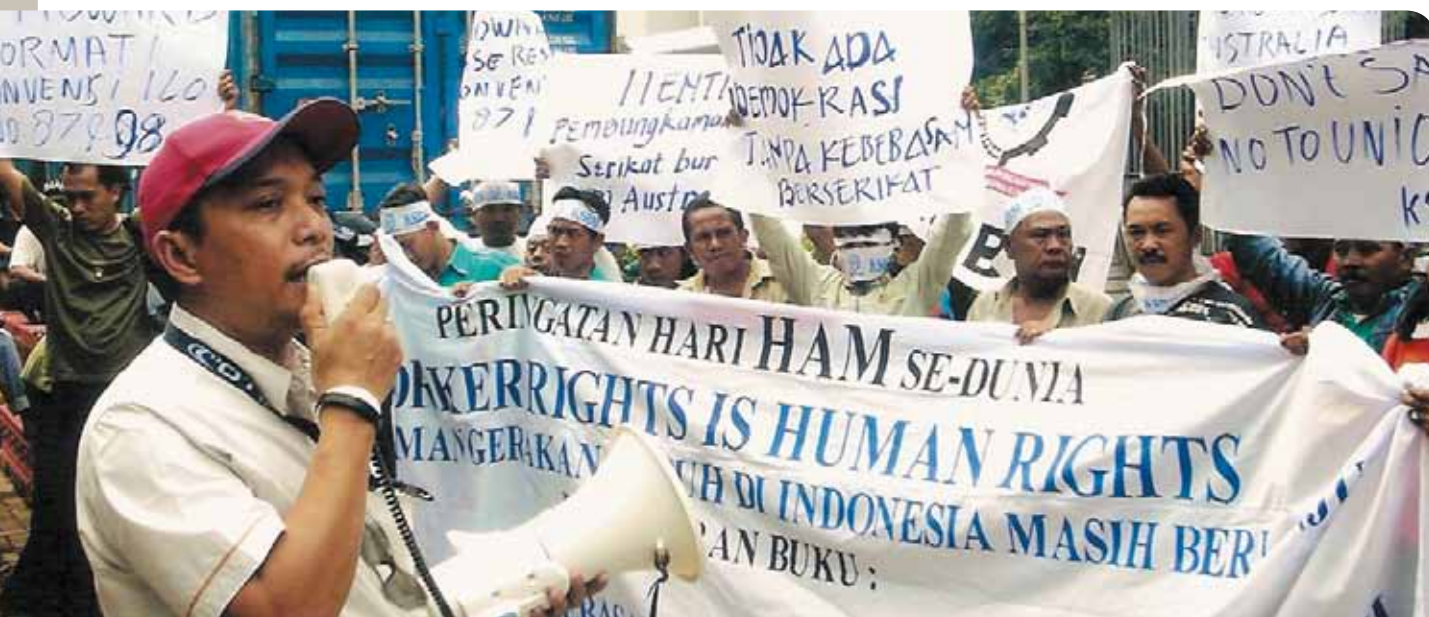 ORMATI
NVENSI ILO
87 & 98
871
HENTI
Pembungkaman
Serikat bur
Aust
TIDAK ADA
DEMOKRASI
TANPA KEBEBASAN
BERSERIKAT
STRALIA
DON'T SA
NO TO UNIO
PERINGATAN HARI HAM SE-DUNIA
ORKERRIGHTS IS HUMAN RIGHTS
UH DI INDONESIA MASIH BER
AN BUKU :